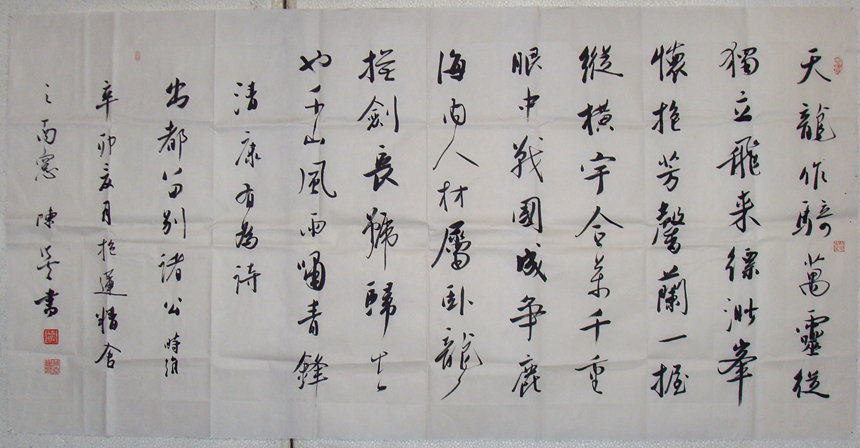 天龍作騎萬靈從
獨立飛來縹渺峯
懷抱芳馨蘭一握
縱橫宇合千重
眼中戰國成爭鹿
海內人材屬臥龍
劍長號歸去
也千山風雨嘯青鋒
清康有為詩
出都留別諸公 時
辛卯亥月抱蓮精舍
之南窗 陳書